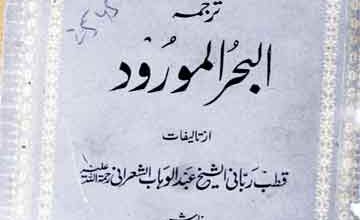 ترجمہ
البحرُ المورُود
از تالیفات
قطبِ ربانی الشیخ عبد الوہاب الشعرانی رحمۃ اللہ علیہ